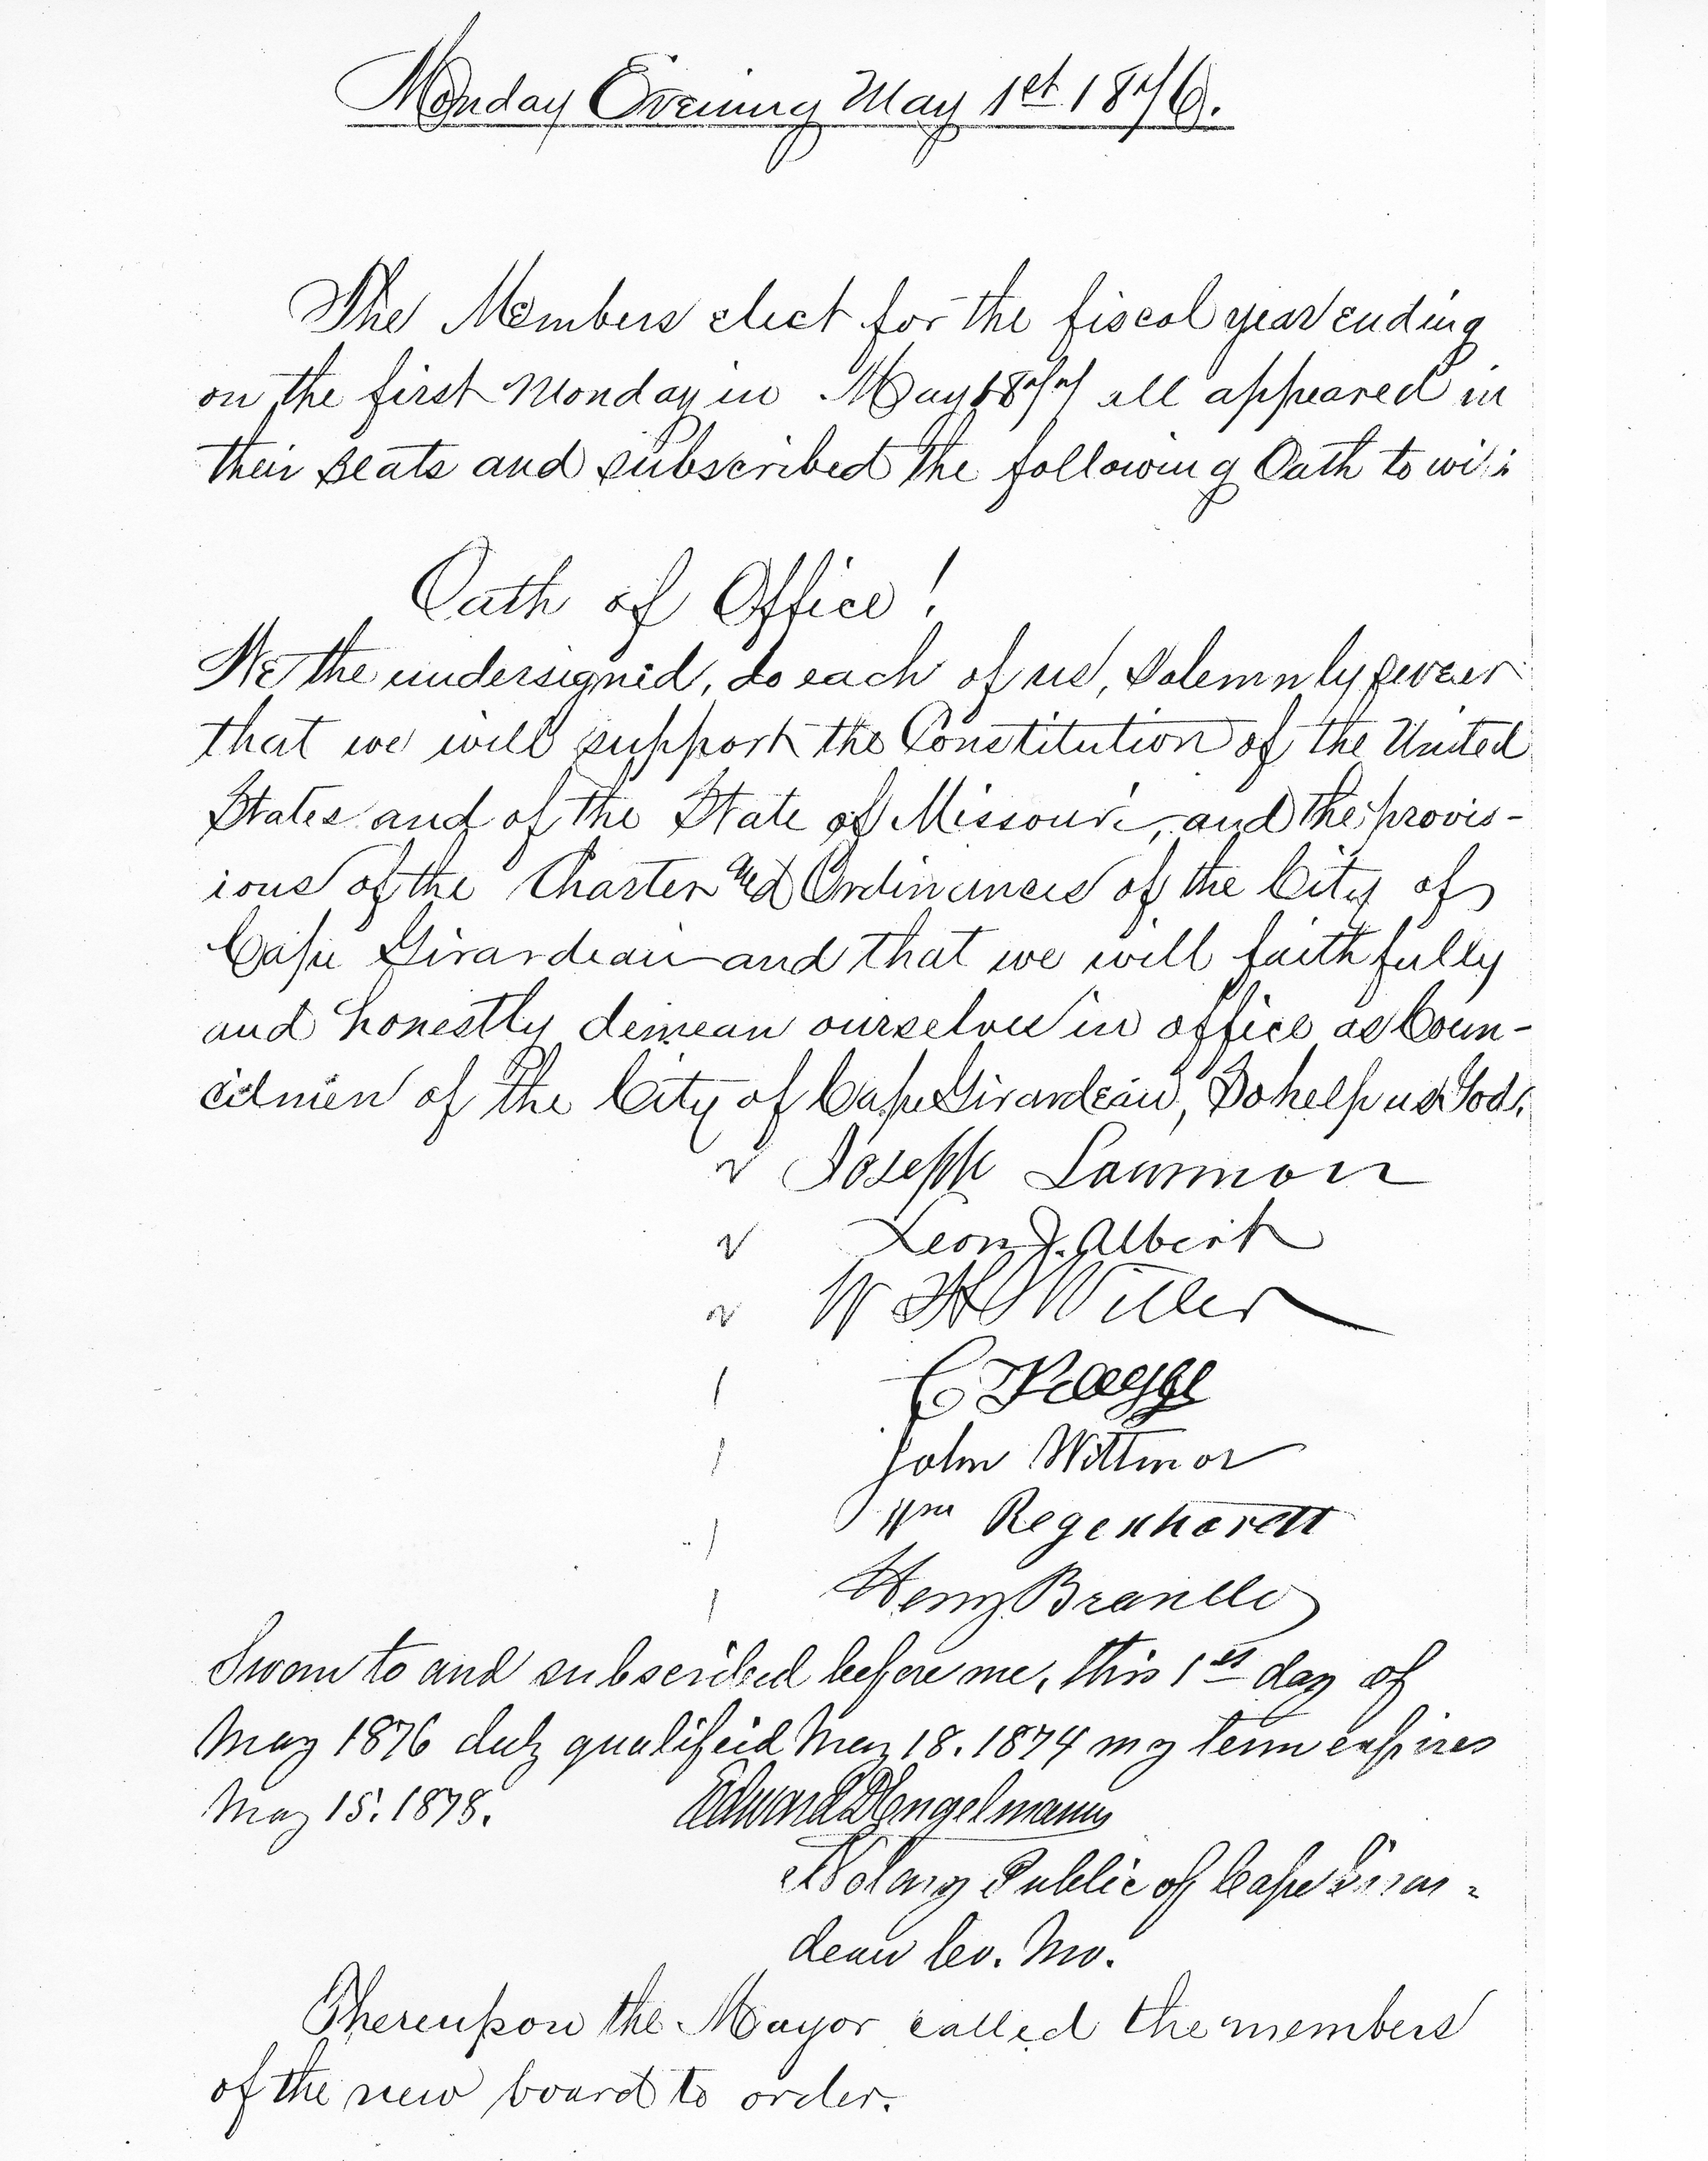 Monday Evening May 1st 1876.
The Members elect for the fiscal year ending
on the first Monday in May 1877 all appeared in
their seats and subscribed the following Oath to wit:
Oath of Office!
We the undersigned, do each of us, solemnly swear
that we will support the Constitution of the United
States and of the State of Missouri, and the provis-
ions of the Charter and Ordinances of the City of
Cape Girardeau and that we will faithfully
and honestly demean ourselves in office as Coun-
cilmen of the City of Cape Girardeau, So help us God.
Joseph Lawmon
Leon J. Albert
W H
C
John Wittmor
Wm Regenhardt
Henry Brandes
Sworn to and subscribed before me, this 1st day of
May 1876 duly qualifeid May 18. 1874 my term expires
May 15. 1878. Edward D Engelmann
Notary Public of Cape Girar-
deau Co. Mo.
Thereupon the Mayor called the members
of the new board to order.